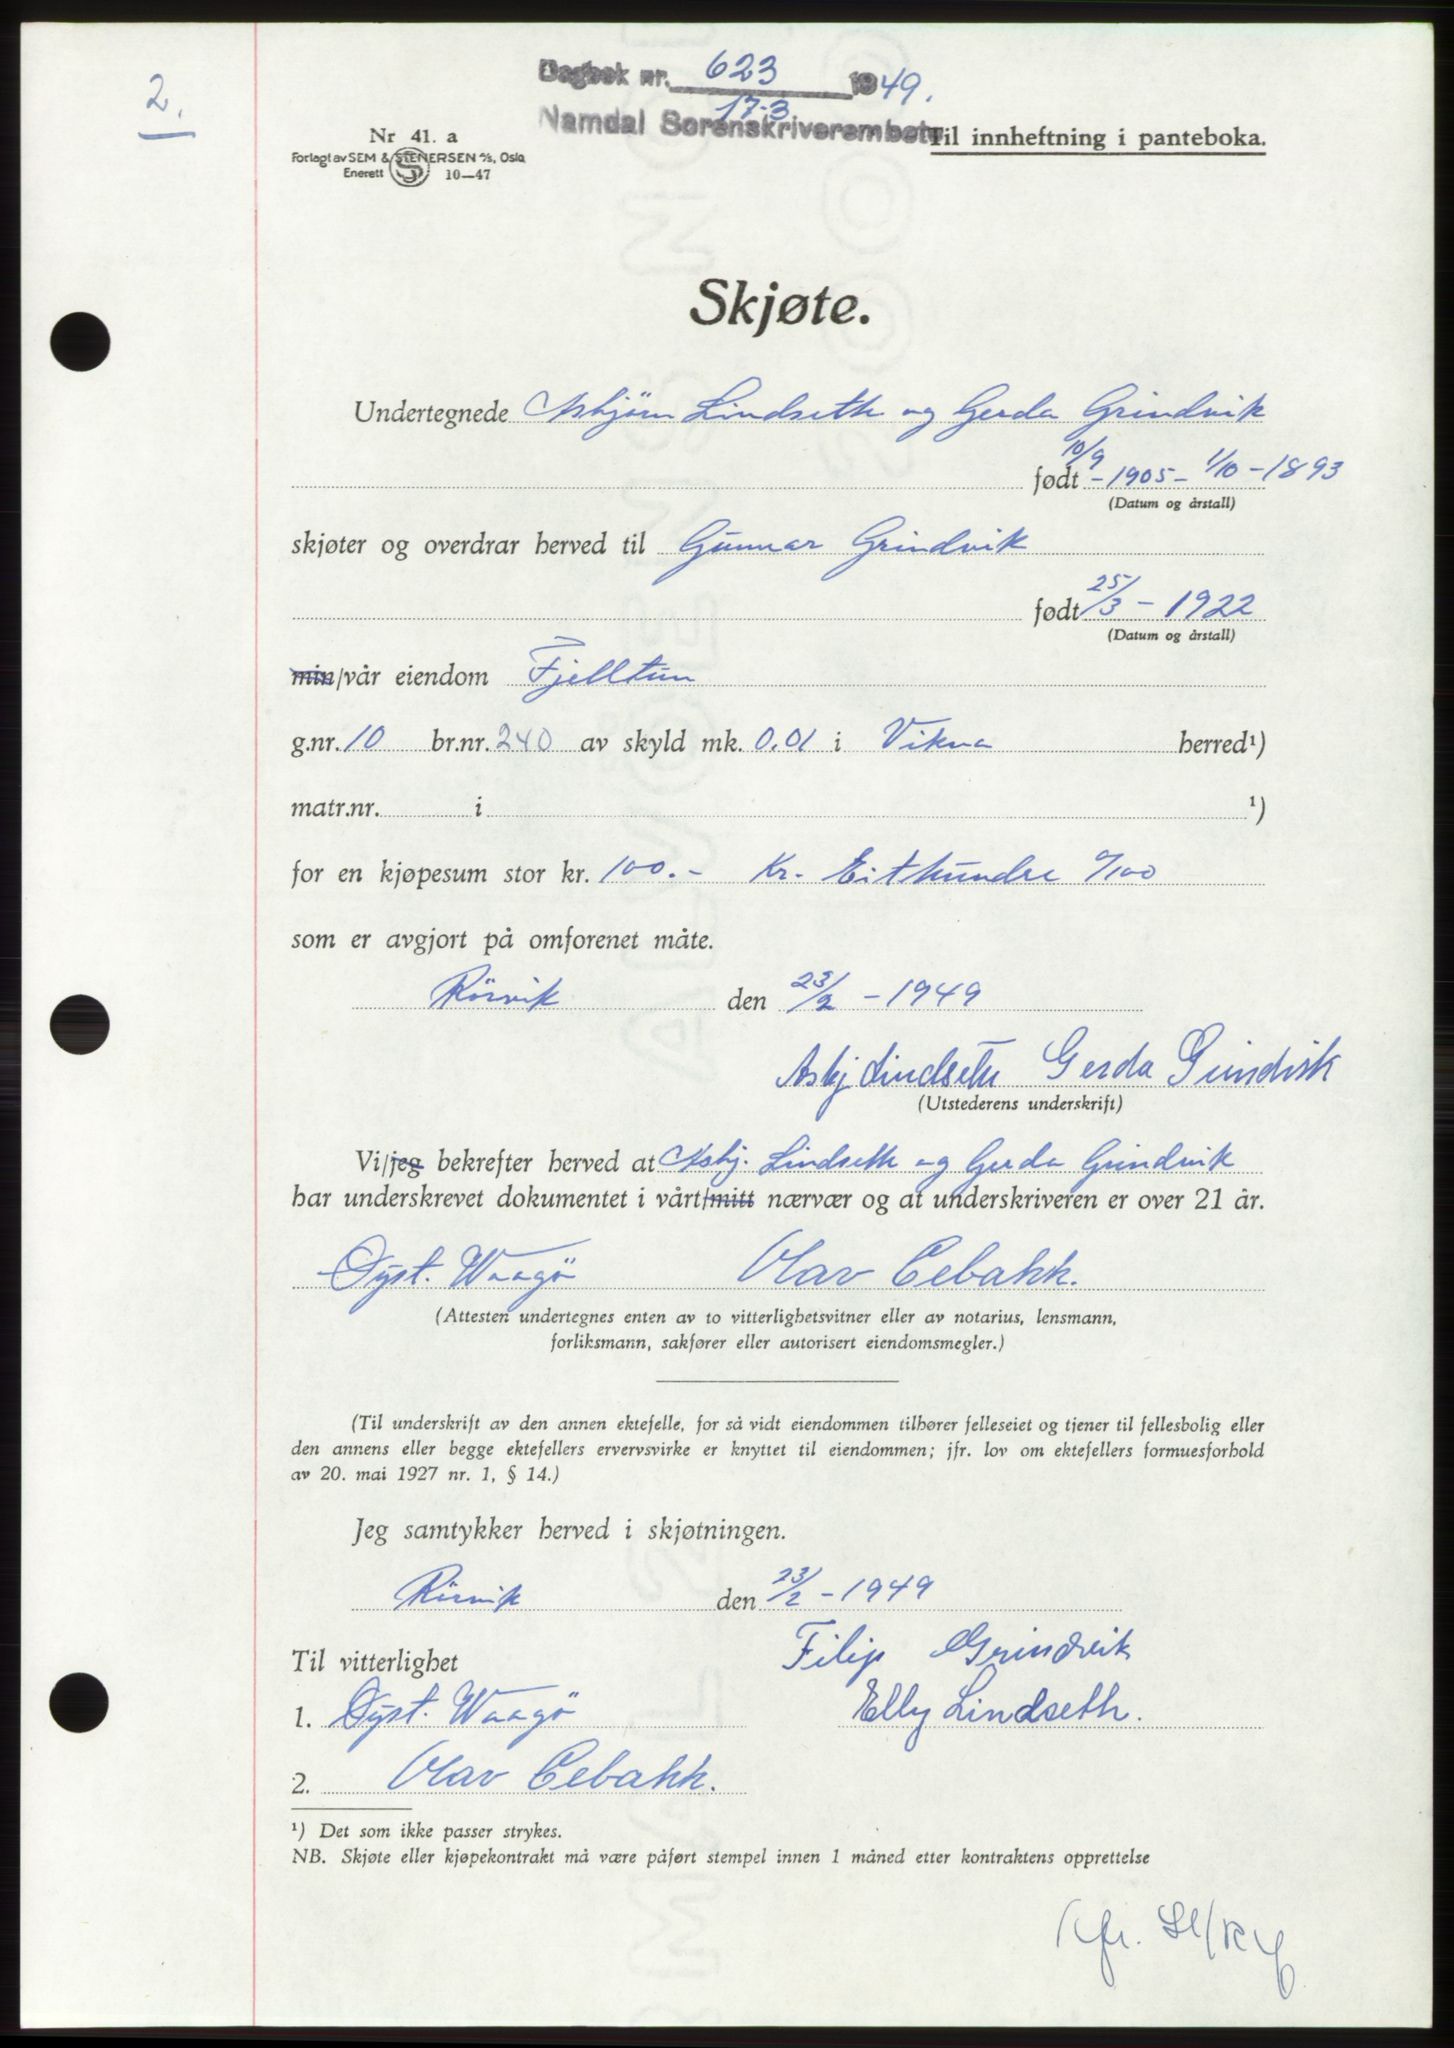 2.
Dagbok nr. 623 1949.
17-3
Namdal Sorenskriverembete
Til innheftning i panteboka.
Nr 41. a
Forlagt av SEM & STENERSEN A/S, Oslo
Enerett 10—47
Skjøte.
Undertegnede Asbjörn Lindseth og Gerda Grindvik
født 10/9 - 1905 - 1/10 - 1893
(Datum og årstall)
skjøter og overdrar herved til Gunnar Grindvik
født 25/3 - 1922
(Datum og årstall)
min/vår eiendom Fjelltun
g.nr. 10 br.nr. 240 av skyld mk. 0.01 i Vikna herred¹)
matr.nr. i ¹)
for en kjøpesum stor kr. 100.- Kr. Eithundre 0/100
som er avgjort på omforenet måte.
Rörvik den 23/2 - 1949
Asbj Lindseth Gerda Grindvik
(Utstederens underskrift)
Vi/jeg bekrefter herved at Asbj. Lindseth og Gerda Grindvik
har underskrevet dokumentet i vårt/mitt nærvær og at underskriveren er over 21 år.
Öyst. Waagö Olav Cebakk.
(Attesten undertegnes enten av to vitterlighetsvitner eller av notarius, lensmann,
forliksmann, sakfører eller autorisert eiendomsmegler.)
(Til underskrift av den annen ektefelle, for så vidt eiendommen tilhører felleseiet og tjener til fellesbolig eller
den annens eller begge ektefellers ervervsvirke er knyttet til eiendommen; jfr. lov om ektefellers formuesforhold
av 20. mai 1927 nr. 1, § 14.)
Jeg samtykker herved i skjøtningen.
Rörvik den 23/2 - 1949
Filip Grindvik
Til vitterlighet
1. Öyst. Waagö Elly Lindseth.
2. Olav Cebakk.
¹) Det som ikke passer strykes.
NB. Skjøte eller kjøpekontrakt må være påført stempel innen 1 måned etter kontraktens opprettelse